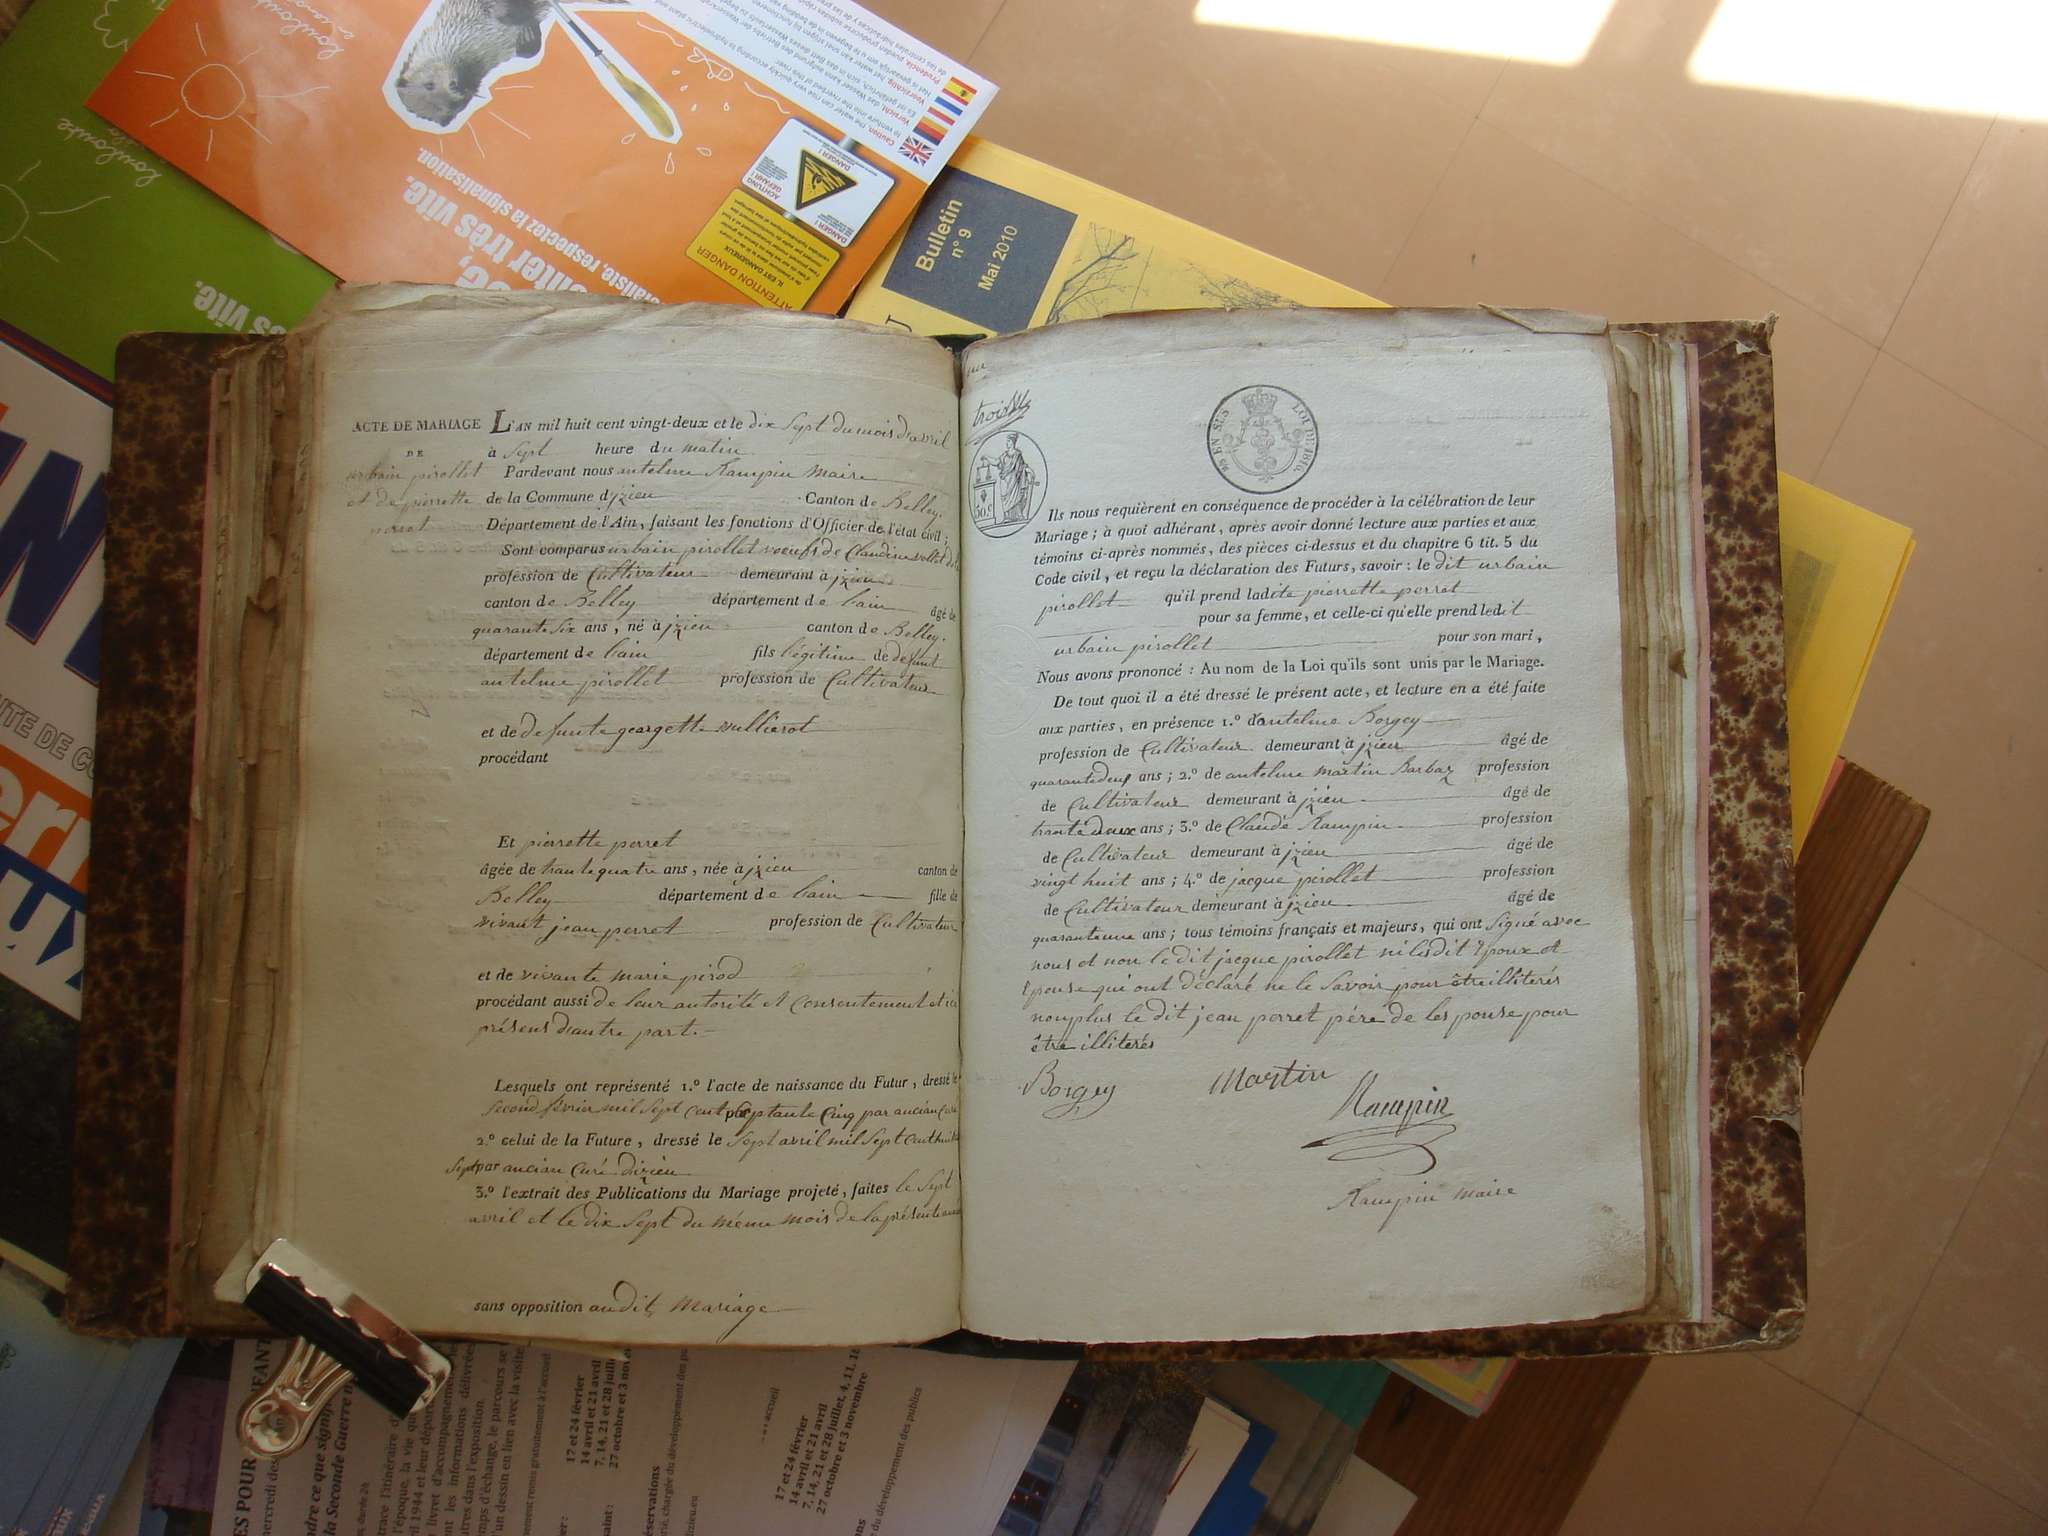 ACTE DE MARIAGE
DE
urbain pirollet
et de pierrette
perret
L'AN mil huit cent vingt-deux et le dix Sept du mois d'avril
à Sept heure du matin
Pardevant nous antelme Rampin Maire
de la Commune d'jzieu Canton de Belley.
Département de l'Ain, faisant les fonctions d'Officier de l'état civil;
Sont comparus urbain pirollet voeufs de Claudine
profession de Cultivateur demeurant à jzieu
canton de Belley département de lain âgé de
quarante Six ans, né à jzieu canton de Belley.
département de lain fils légitime de defunt
antelme pirollet profession de Cultivateur
et de defunte georgette vullierot
procédant
Et pierrette perret
âgée de trante quatre ans, née à jzieu canton de
Belley département de lain fille de
vivant jean perret profession de Cultivateur
et de vivante marie pirod
procédant aussi de leur autorité et Consentement et ici
présens d'autre part.
Lesquels ont représenté 1.º l'acte de naissance du Futur, dressé le
Second février mil Sept Cent Septante Cinq par ancian Curé
2.º celui de la Future, dressé le Sept avril mil Sept Cent huit
Sept par ancian Curé dizieu
3.º l'extrait des Publications du Mariage projeté, faites le Sept
avril et le dix Sept du même mois de la présente
sans opposition audit Mariage
trois
50 c
LOI DE 1816.
EN SUS
Ils nous requièrent en conséquence de procéder à la célébration de leur
Mariage; à quoi adhérant, après avoir donné lecture aux parties et aux
témoins ci-après nommés, des pièces ci-dessus et du chapitre 6 tit. 5 du
Code civil, et reçu la déclaration des Futurs, savoir: le dit urbain
pirollet qu'il prend ladite pierrette perret
pour sa femme, et celle-ci qu'elle prend ledit
urbain pirollet pour son mari,
Nous avons prononcé: Au nom de la Loi qu'ils sont unis par le Mariage.
De tout quoi il a été dressé le présent acte, et lecture en a été faite
aux parties, en présence 1.º d'antelme Borgey
profession de Cultivateur demeurant à jzieu âgé de
quarante deux ans; 2.º de antelme martin Barbaz profession
de Cultivateur demeurant à jzieu âgé de
trante deux ans; 3.º de Claude Rampin profession
de Cultivateur demeurant à jzieu âgé de
vingt huit ans; 4.º de jacque pirollet profession
de Cultivateur demeurant à jzieu âgé de
quarante une ans; tous témoins français et majeurs, qui ont Signé avec
nous et non le dit jacque pirollet ni lesdit Epoux et
Epouse qui ont déclaré ne le Savoir pour être illiterés
nonplus le dit jean perret père de les pouse pour
être illiterés
Borgey
Martin
Rampin
Rampin maire
Bulletin
n° 9
Mai 2010
onter très vite.
respectez la signalisation.
ATTENTION DANGER
IL EST DANGEREUX
DANGER !
ACHTUNG
GEFAHR !
DANGER !
Caution,
Vorsicht,
Voorzichtig,
Prudencia,
s vite.
17 et 24 février
14 avril et 21 avril
7, 14, 21 et 28 juillet, 4, 11, 18
27 octobre et 3 novembre
17 et 24 février
14 avril et 21 avril
7, 14, 21 et 28 juillet, 4, 11, 18
27 octobre et 3 novembre
la Seconde Guerre
du développement des publics